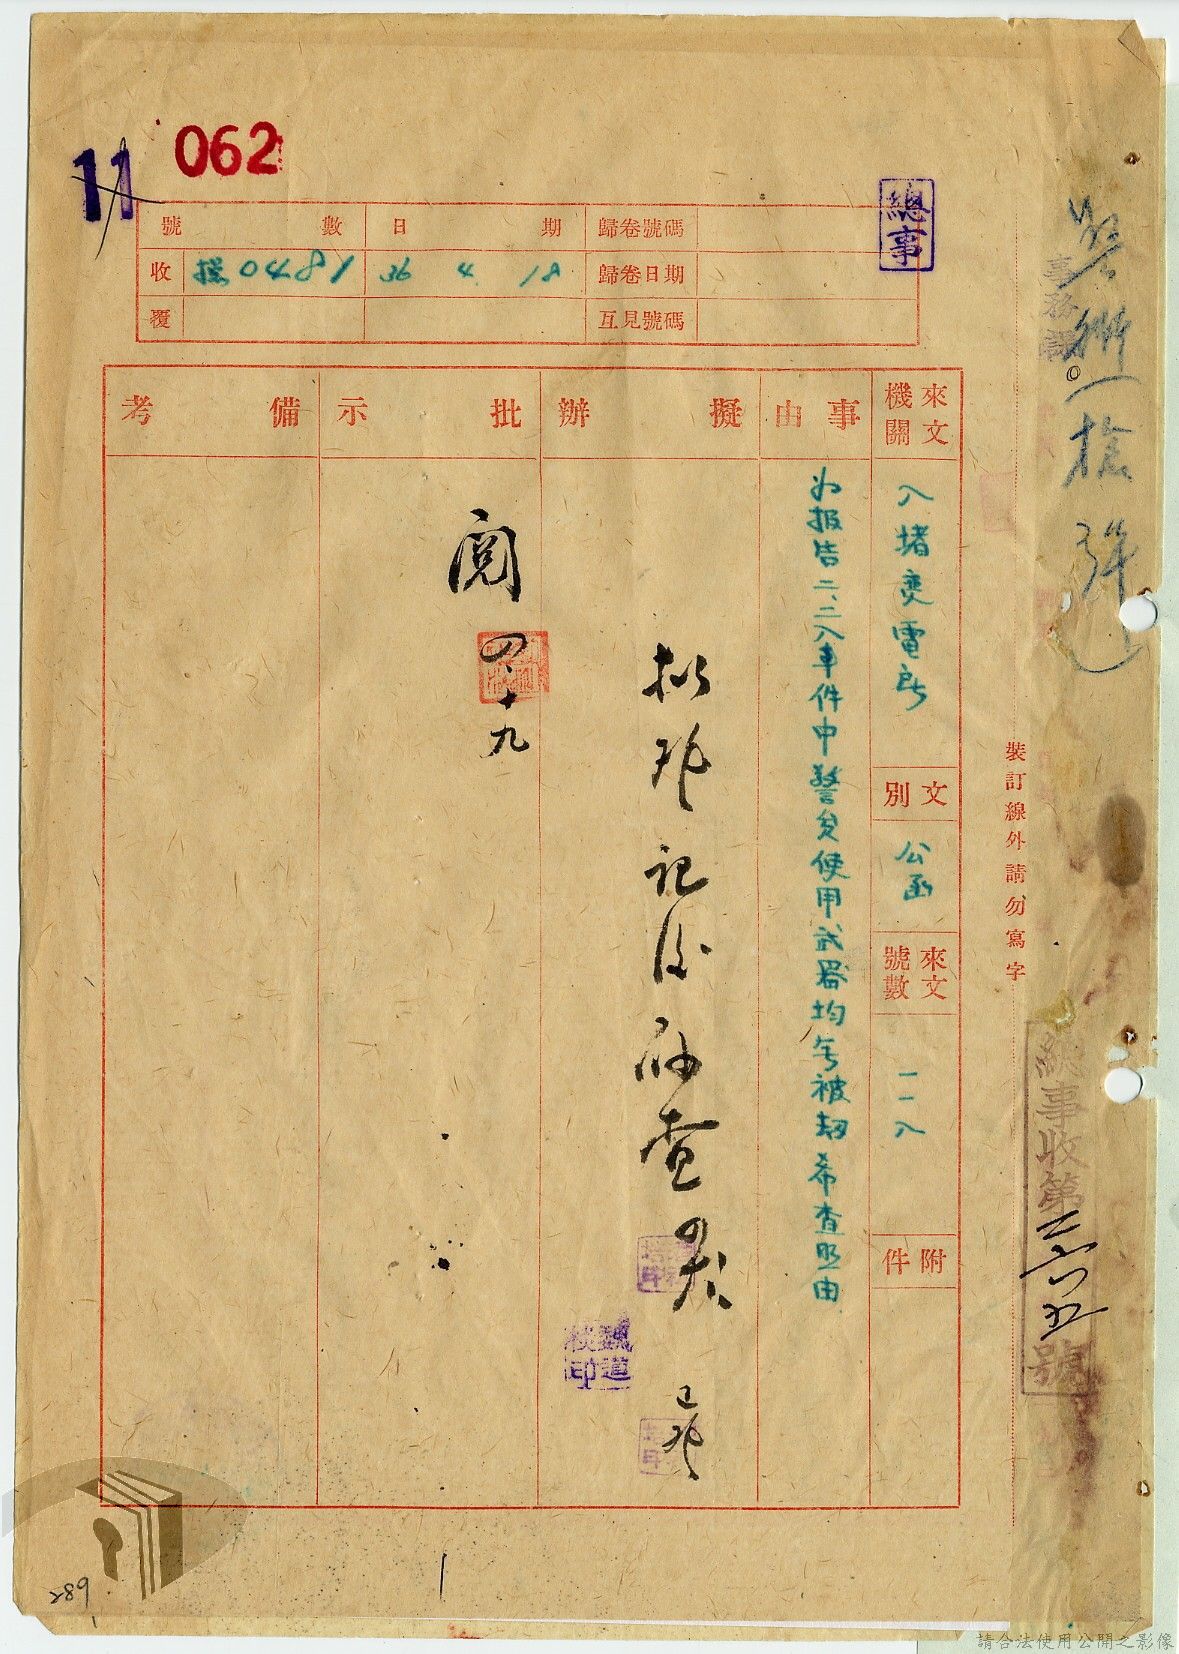 062
11
總事
號數 日期 歸卷號碼
收 總0481 36 4 18 歸卷日期
覆 互見號碼
來文機關
八堵變電所
文別
公函
來文號數
一一八
附件
事由
為報告二、二八事件中警員使用武器均無被刼希查照由
擬辦
查
批示
閱
四.十九
備考
裝訂線外請勿寫字
事務課
總事收第二六五號
魏道
印
289
請合法使用公開之影像